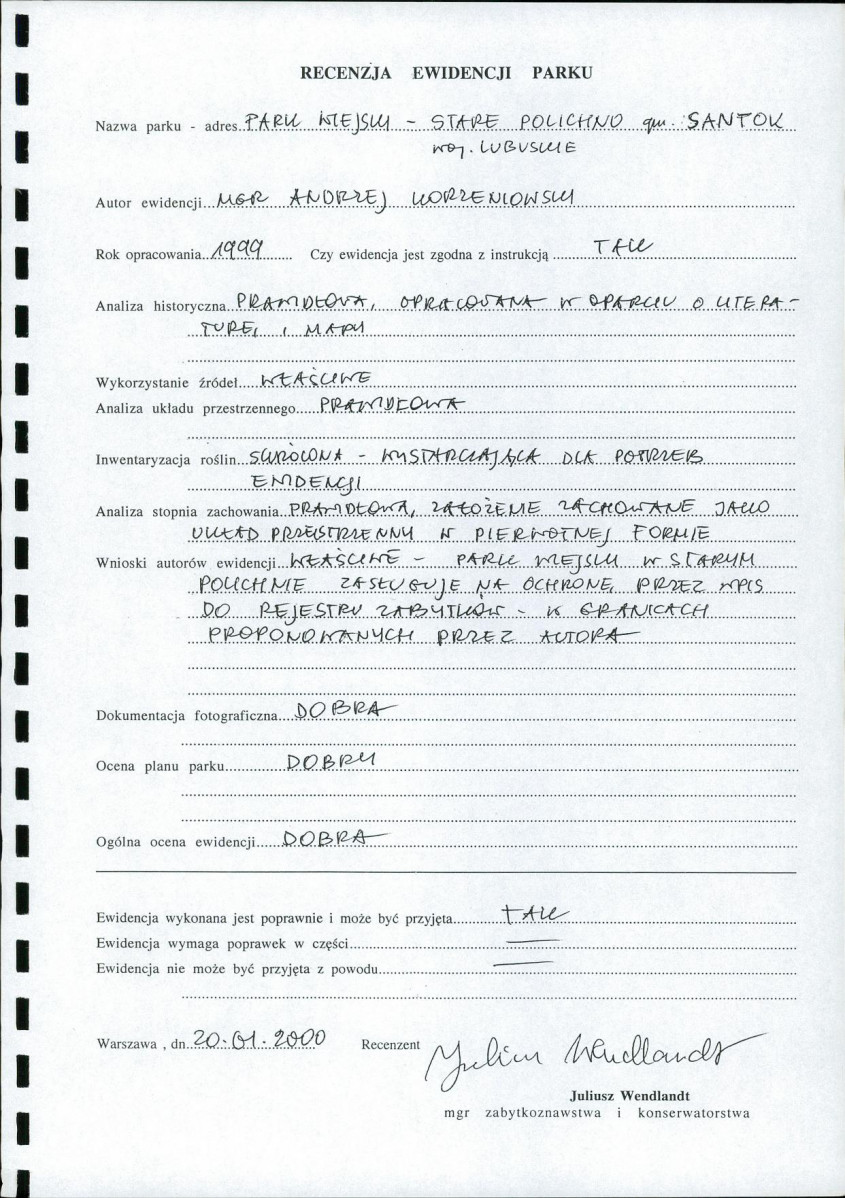 RECENZJA EWIDENCJI PARKU
Nazwa parku - adres PARK WIEJSKI - STARE POLICHNO gm. SANTOK
woj. LUBUSKIE
Autor ewidencji MGR ANDRZEJ KORZENIOWSKI
Rok opracowania 1999 Czy ewidencja jest zgodna z instrukcją TAK
Analiza historyczna PRAWIDŁOWA, OPRACOWANA W OPARCIU O LITERA-
TURĘ, I MAPY
Wykorzystanie źródeł WŁAŚCIWE
Analiza układu przestrzennego PRAWIDŁOWA
Inwentaryzacja roślin SKRÓCONA - WYSTARCZAJĄCA DLA POTRZEB
EWIDENCJI
Analiza stopnia zachowania PRAWIDŁOWA, ZAŁOŻENIE ZACHOWANE JAKO
UKŁAD PRZESTRZENNY W PIERWOTNEJ FORMIE
Wnioski autorów ewidencji WŁAŚCIWE - PARK WIEJSKI W STARYM
POLICHNIE ZASŁUGUJE NA OCHRONĘ, PRZEZ WPIS
DO REJESTRU ZABYTKÓW - W GRANICACH
PROPONOWANYCH PRZEZ AUTORA
Dokumentacja fotograficzna DOBRA
Ocena planu parku DOBRY
Ogólna ocena ewidencji DOBRA
Ewidencja wykonana jest poprawnie i może być przyjęta TAK
Ewidencja wymaga poprawek w części —
Ewidencja nie może być przyjęta z powodu —
Warszawa , dn. 20.01.2000 Recenzent Juliusz Wendlandt
Juliusz Wendlandt
mgr zabytkoznawstwa i konserwatorstwa